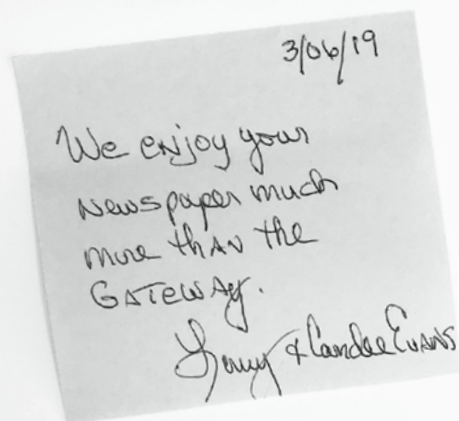 3/06/19
We enjoy your
Newspaper much
more than the
GATEWAY.
& Candee EVANS